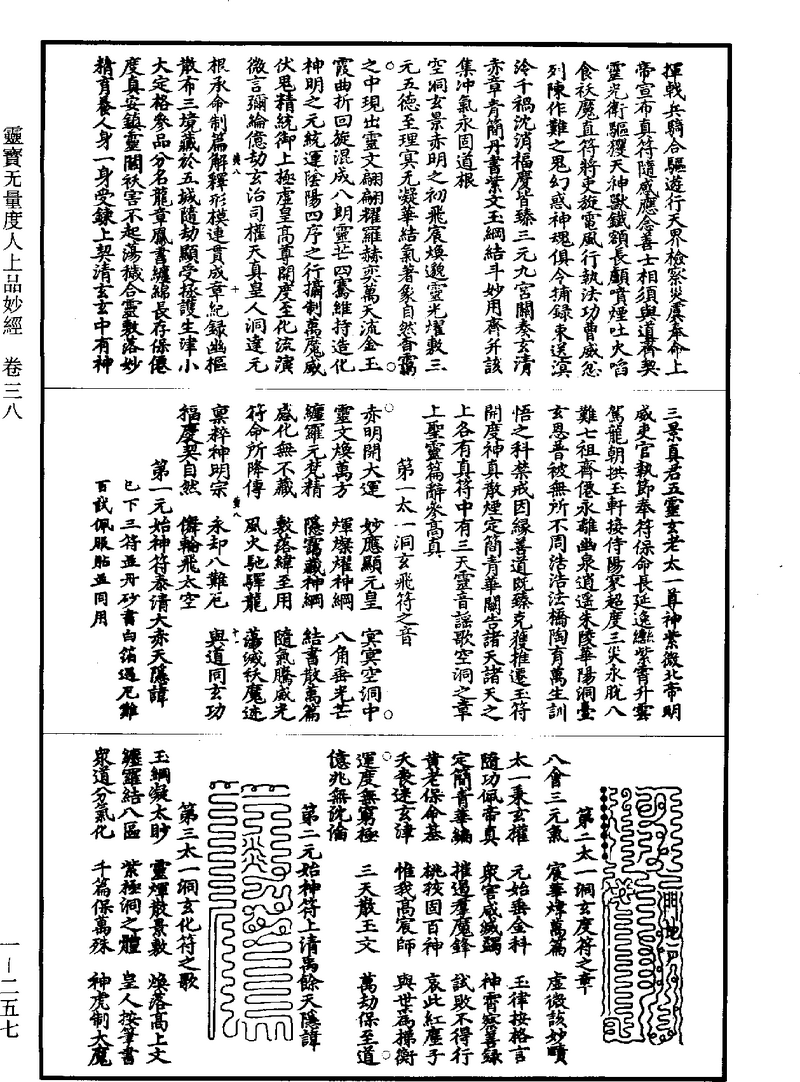 靈寶无量度人上品妙經 卷三八
揮戟兵騎合驅遊行天界檢察災虞奉命上
帝宣布真符隨感應念善士相須與道齊契
靈光衛驅玃天神獸鐵額長顱賁煙吐火啗
食祅魔直符將吏旋電風行執法功曹威忿
列陳作難之鬼幻惑神魂俱令捕録束送溟
泠千禍沈消福慶皆臻三元九宮關奏玄清
赤章青簡丹書紫文玉綱結斗妙用齊升該
集冲氣永固道根
空洞玄景赤明之初飛宸煥邈靈光燿敷三
元五德至理冥元凝華結氣著象自然杳靄
之中現出靈文翩翩耀羅赫奕萬天流金玉
霞曲折回旋混成八朗靈芒四騫維持造化
神明之元統運陰陽四序之行攝制萬魔威
伏鬼精統御上極虛皇高尊開度至化流演
微言彌綸億劫玄治司權天真皇人洞達元
根承命制篇解釋形模連貫成章紀録幽樞
散布三境藏於五城隨劫顯受拯護生津小
大定格參品分名龍章鳳書纏綿長存保僊
度真安鎮靈關祅害不起蕩穢合靈敷落妙
精育養人身一身受鍊上契清玄玄中有神
三景真君五靈玄老太一尊神紫微北帝明
威吏官執節奉符保命長延逸轡紫霄升雲
駕龍朝拱玉軒接侍陽寥超度三災永脫八
難七祖齊僊永離幽泉逍遙朱陵華陽洞臺
玄恩普被無所不周浩浩法橋陶育萬生訓
悟之科禁戒因緣善道既臻克獲推遷玉符
開度神真散煙定簡青華關告諸天諸天之
上各有真符中有三天靈音謡歌空洞之章
上聖靈篇辭參高真
第一太一洞玄飛符之音
赤明開大運 妙應顯元皇 冥冥空洞中
靈文煥萬方 煇燦燿神綱 八角垂光芒
纏羅元梵精 隱靄藏神綱 結書散萬篇
感化無不藏 敷落緯至用 隨氣騰威光
符命所降傳 風火馳驛龍 蕩滅祅魔迹
禀粹神明宗 永却八難厄 與道同玄功
福慶契自然 儛輪飛太空
第一元始神符泰清大赤天隱諱
已下三符並丹砂書白箔遇厄難
百試佩服貼並同用
第二太一洞玄度符之章
八會三元氣 宸華煒萬篇 虛微該妙賾
太一秉玄權 元始垂金科 玉律按格言
隨功佩帝真 衆害咸滅蠲 神霄察善録
定簡青華編 摧過羣魔鋒 試敗不得行
黄老保命基 桃孩固百神 哀此紅塵子
夭喪迷玄津 惟我高宸師 與世爲梯衡
運度無窮極 三天散玉文 萬劫保至道
億兆無沈淪
第二元始神符上清禹餘天隱諱
第三太一洞玄化符之歌
玉綱凝太眇 靈煇散景敷 煥落高上文
纏羅結八區 紫極洞之體 皇人按筆書
衆道分氣化 千篇保萬殊 神虎制大魔
一—二五七